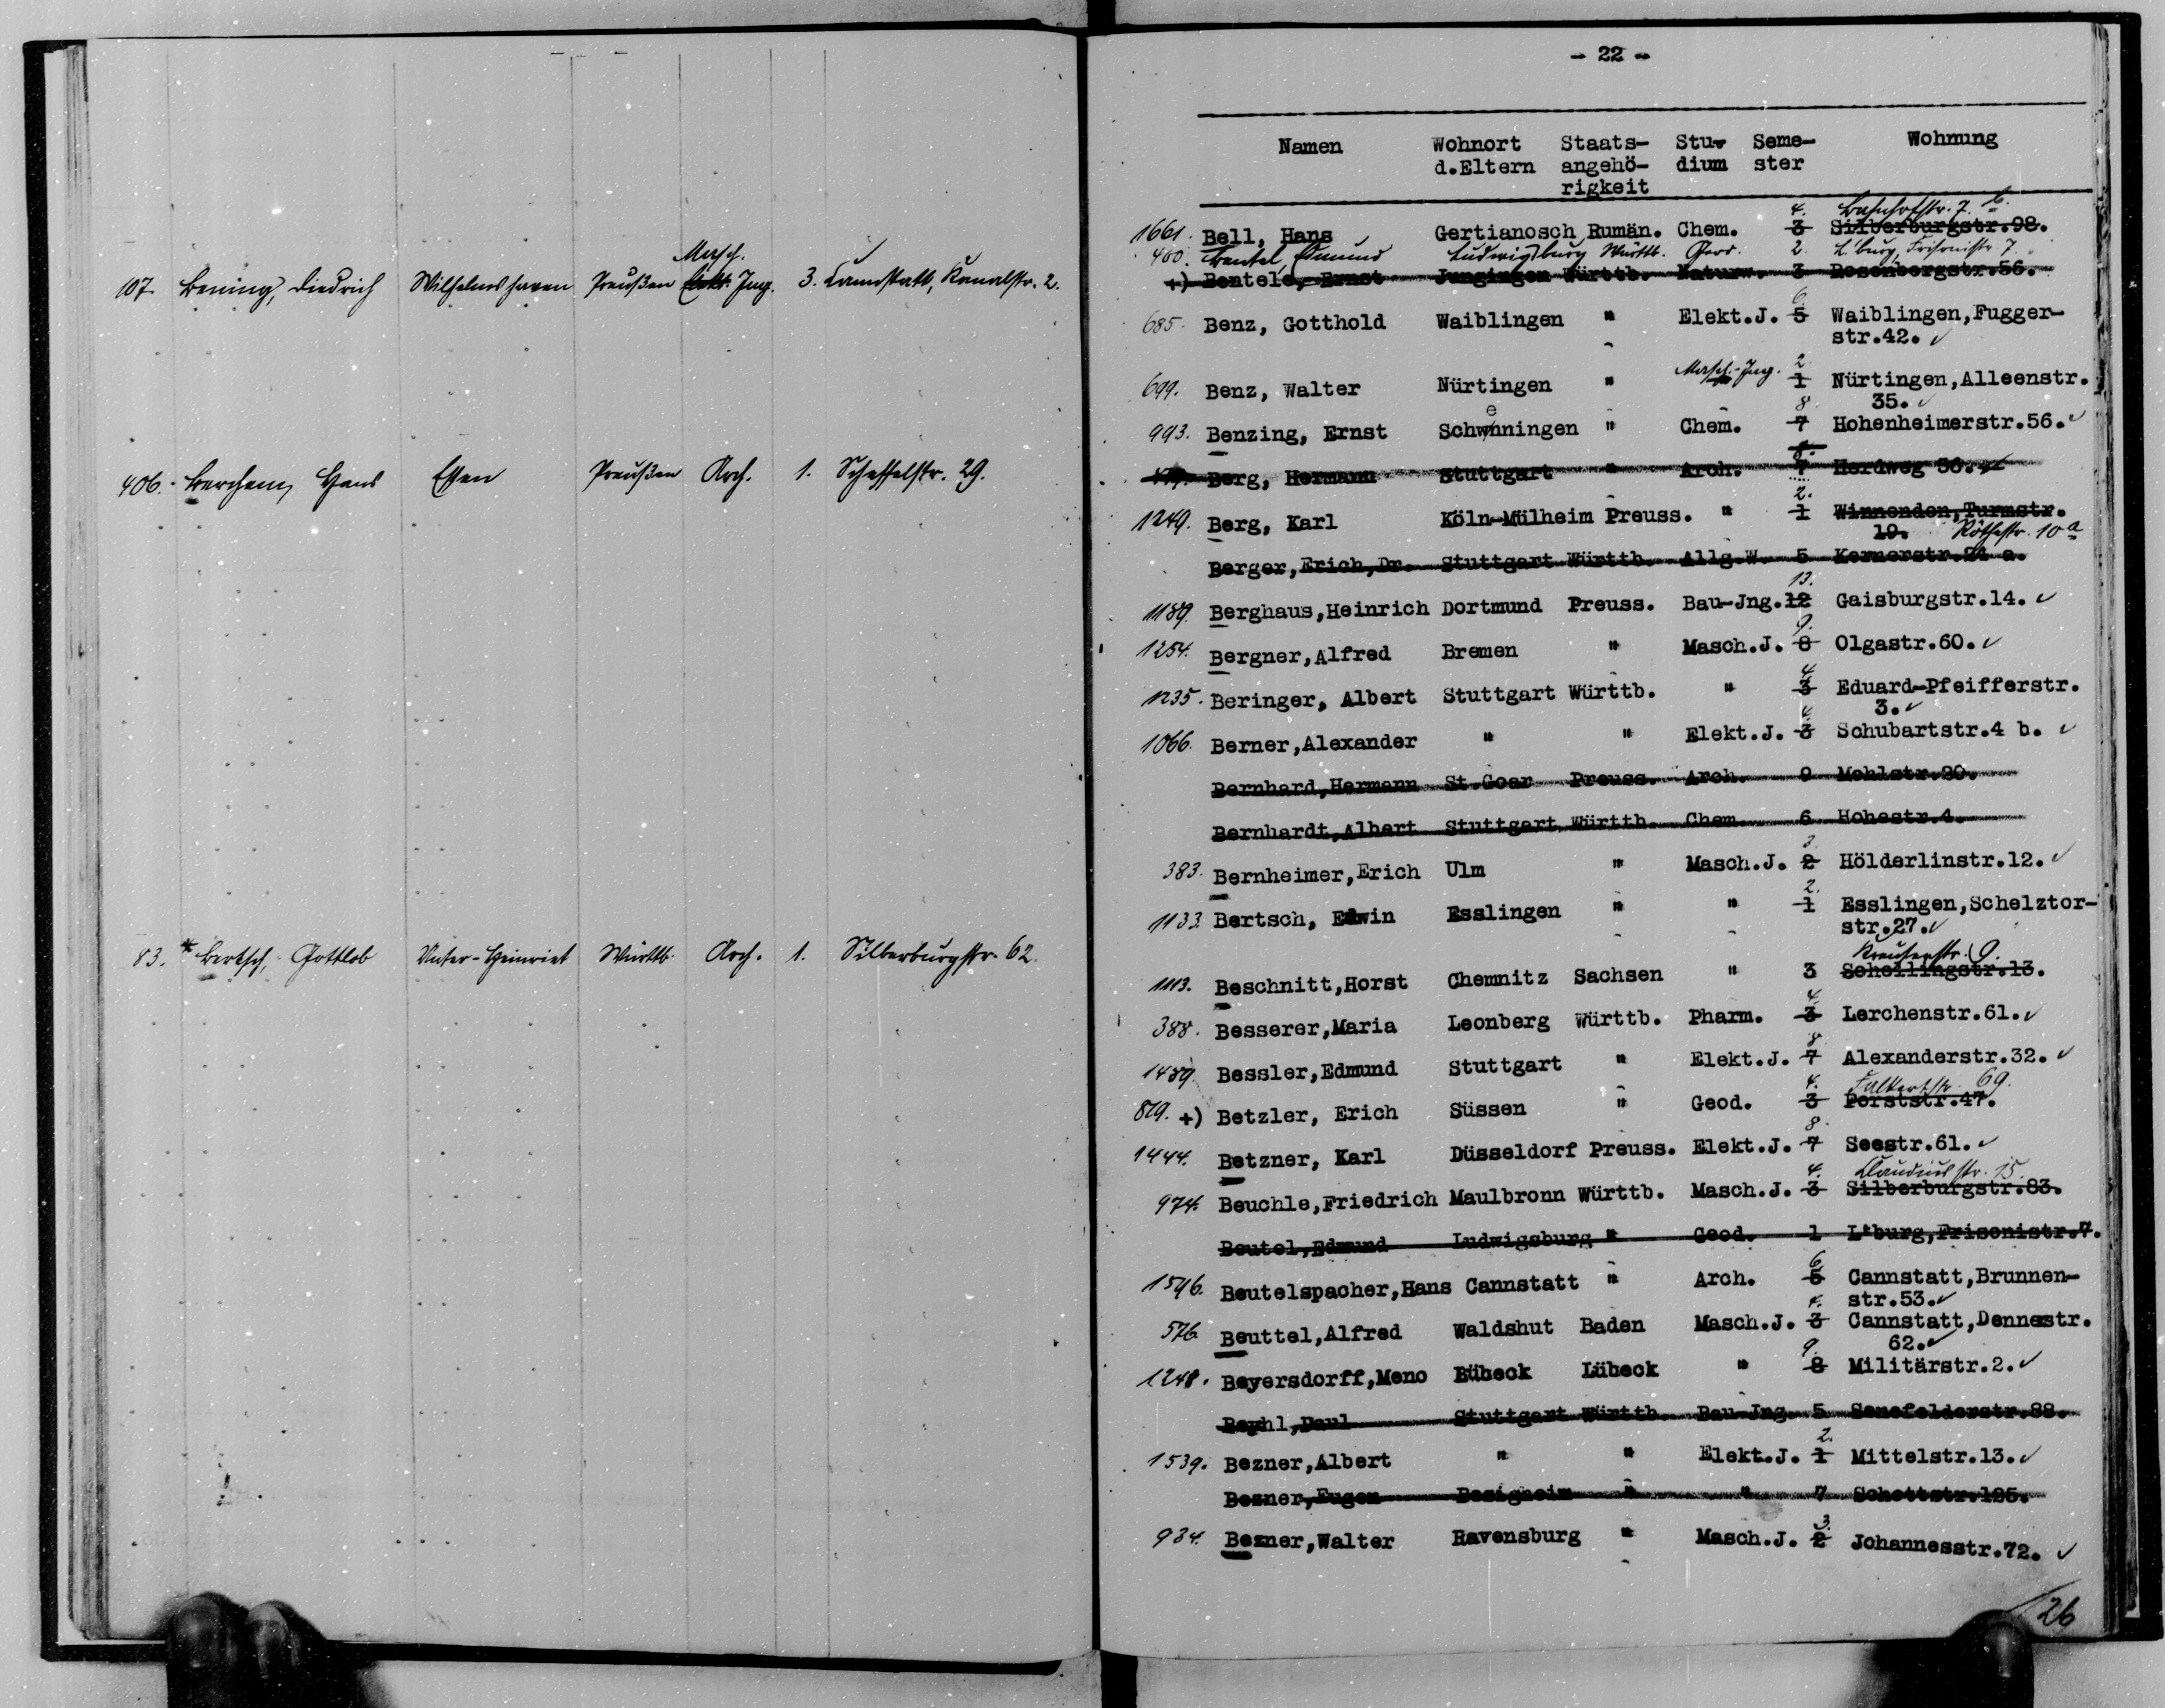 107. Bening, Diedrich Wilhelmshaven Preußen Masch. Elektr. Ing. 3. Cannstatt, Kanalstr. 2.
406. Berchem, Hans Essen Preußen Arch. 1. Scheffelstr. 29.
83. * Bertsch, Gottlob Unter-Heinriet Württb. Arch. 1. Silberburgstr. 62.
- 22 -
Namen Wohnort Staats- Stu- Seme- Wohnung
d.Eltern angehö- dium ster
rigkeit
4. Bahnhofstr. 7. b.
1661. Bell, Hans Gertianosch Rumän. Chem. 3 Silberburgstr.98.
480. Beutel, Edmund Ludwigsburg Württb. Geod. 2. L'burg, Frisonistr. 7.
+) Bentele, Ernst Jungingen Württb. Naturw. 3 Rosenbergstr.56.
6.
685. Benz, Gotthold Waiblingen " Elekt.J. 5 Waiblingen,Fugger-
str.42. ✓
2.
699. Benz, Walter Nürtingen " Masch.-Ing. 1 Nürtingen,Alleenstr.
8. 35. ✓
993. Benzing, Ernst Schwenningen " Chem. 7 Hohenheimerstr.56. ✓
8.
Berg, Hermann Stuttgart " Arch. 7 Herdweg 56. ✓
2.
1249. Berg, Karl Köln-Mülheim Preuss. " 1 Winnenden,Turmstr.
19. Rötestr. 10 a
Berger,Erich,Dr. Stuttgart Württb. Allg.W. 5 Kernerstr.24 a.
13.
1189. Berghaus,Heinrich Dortmund Preuss. Bau-Jng. 12 Gaisburgstr.14. ✓
9.
1254. Bergner,Alfred Bremen " Masch.J. 8 Olgastr.60. ✓
4.
1235. Beringer, Albert Stuttgart Württb. " 3 Eduard-Pfeifferstr.
4. 3. ✓
1066. Berner,Alexander " " Elekt.J. 3 Schubartstr.4 b. ✓
Bernhard,Hermann St.Goar Preuss. Arch. 9 Mohlstr.20.
Bernhardt,Albert Stuttgart Württb. Chem 6 Hohestr.4.
3.
383. Bernheimer,Erich Ulm " Masch.J. 2 Hölderlinstr.12. ✓
2.
1133. Bertsch, Edwin Esslingen " " 1 Esslingen,Schelztor-
str.27. ✓
Kreuserstr. 9.
1113. Beschnitt,Horst Chemnitz Sachsen " 3 Schellingstr.13.
4.
388. Besserer,Maria Leonberg Württb. Pharm. 3 Lerchenstr.61. ✓
8.
1489. Bessler,Edmund Stuttgart " Elekt.J. 7 Alexanderstr.32. ✓
4. Falkertstr. 69.
819. +) Betzler, Erich Süssen " Geod. 3 Forststr.47.
8.
1444. Betzner, Karl Düsseldorf Preuss. Elekt.J. 7 Seestr.61. ✓
4. Claudiusstr. 15.
974. Beuchle,Friedrich Maulbronn Württb. Masch.J. 3 Silberburgstr.83.
Beutel,Edmund Ludwigsburg " Geod. 1 L'burg,Frisonistr.7.
6.
1596. Beutelspacher,Hans Cannstatt " Arch. 5 Cannstatt,Brunnen-
4. str.53. ✓
576. Beuttel,Alfred Waldshut Baden Masch.J. 3 Cannstatt,Dennestr.
9. 62. ✓
1248. Beyersdorff,Meno Lübeck Lübeck " 8 Militärstr.2. ✓
Beyhl,Paul Stuttgart Württb. Bau-Jng. 5 Senefelderstr.88.
2.
1539. Bezner,Albert " " Elekt.J. 1 Mittelstr.13. ✓
Bezner,Eugen Besigheim " " 7 Schottstr.125.
3.
934. Bezner,Walter Ravensburg " Masch.J. 2 Johannesstr.72. ✓
26